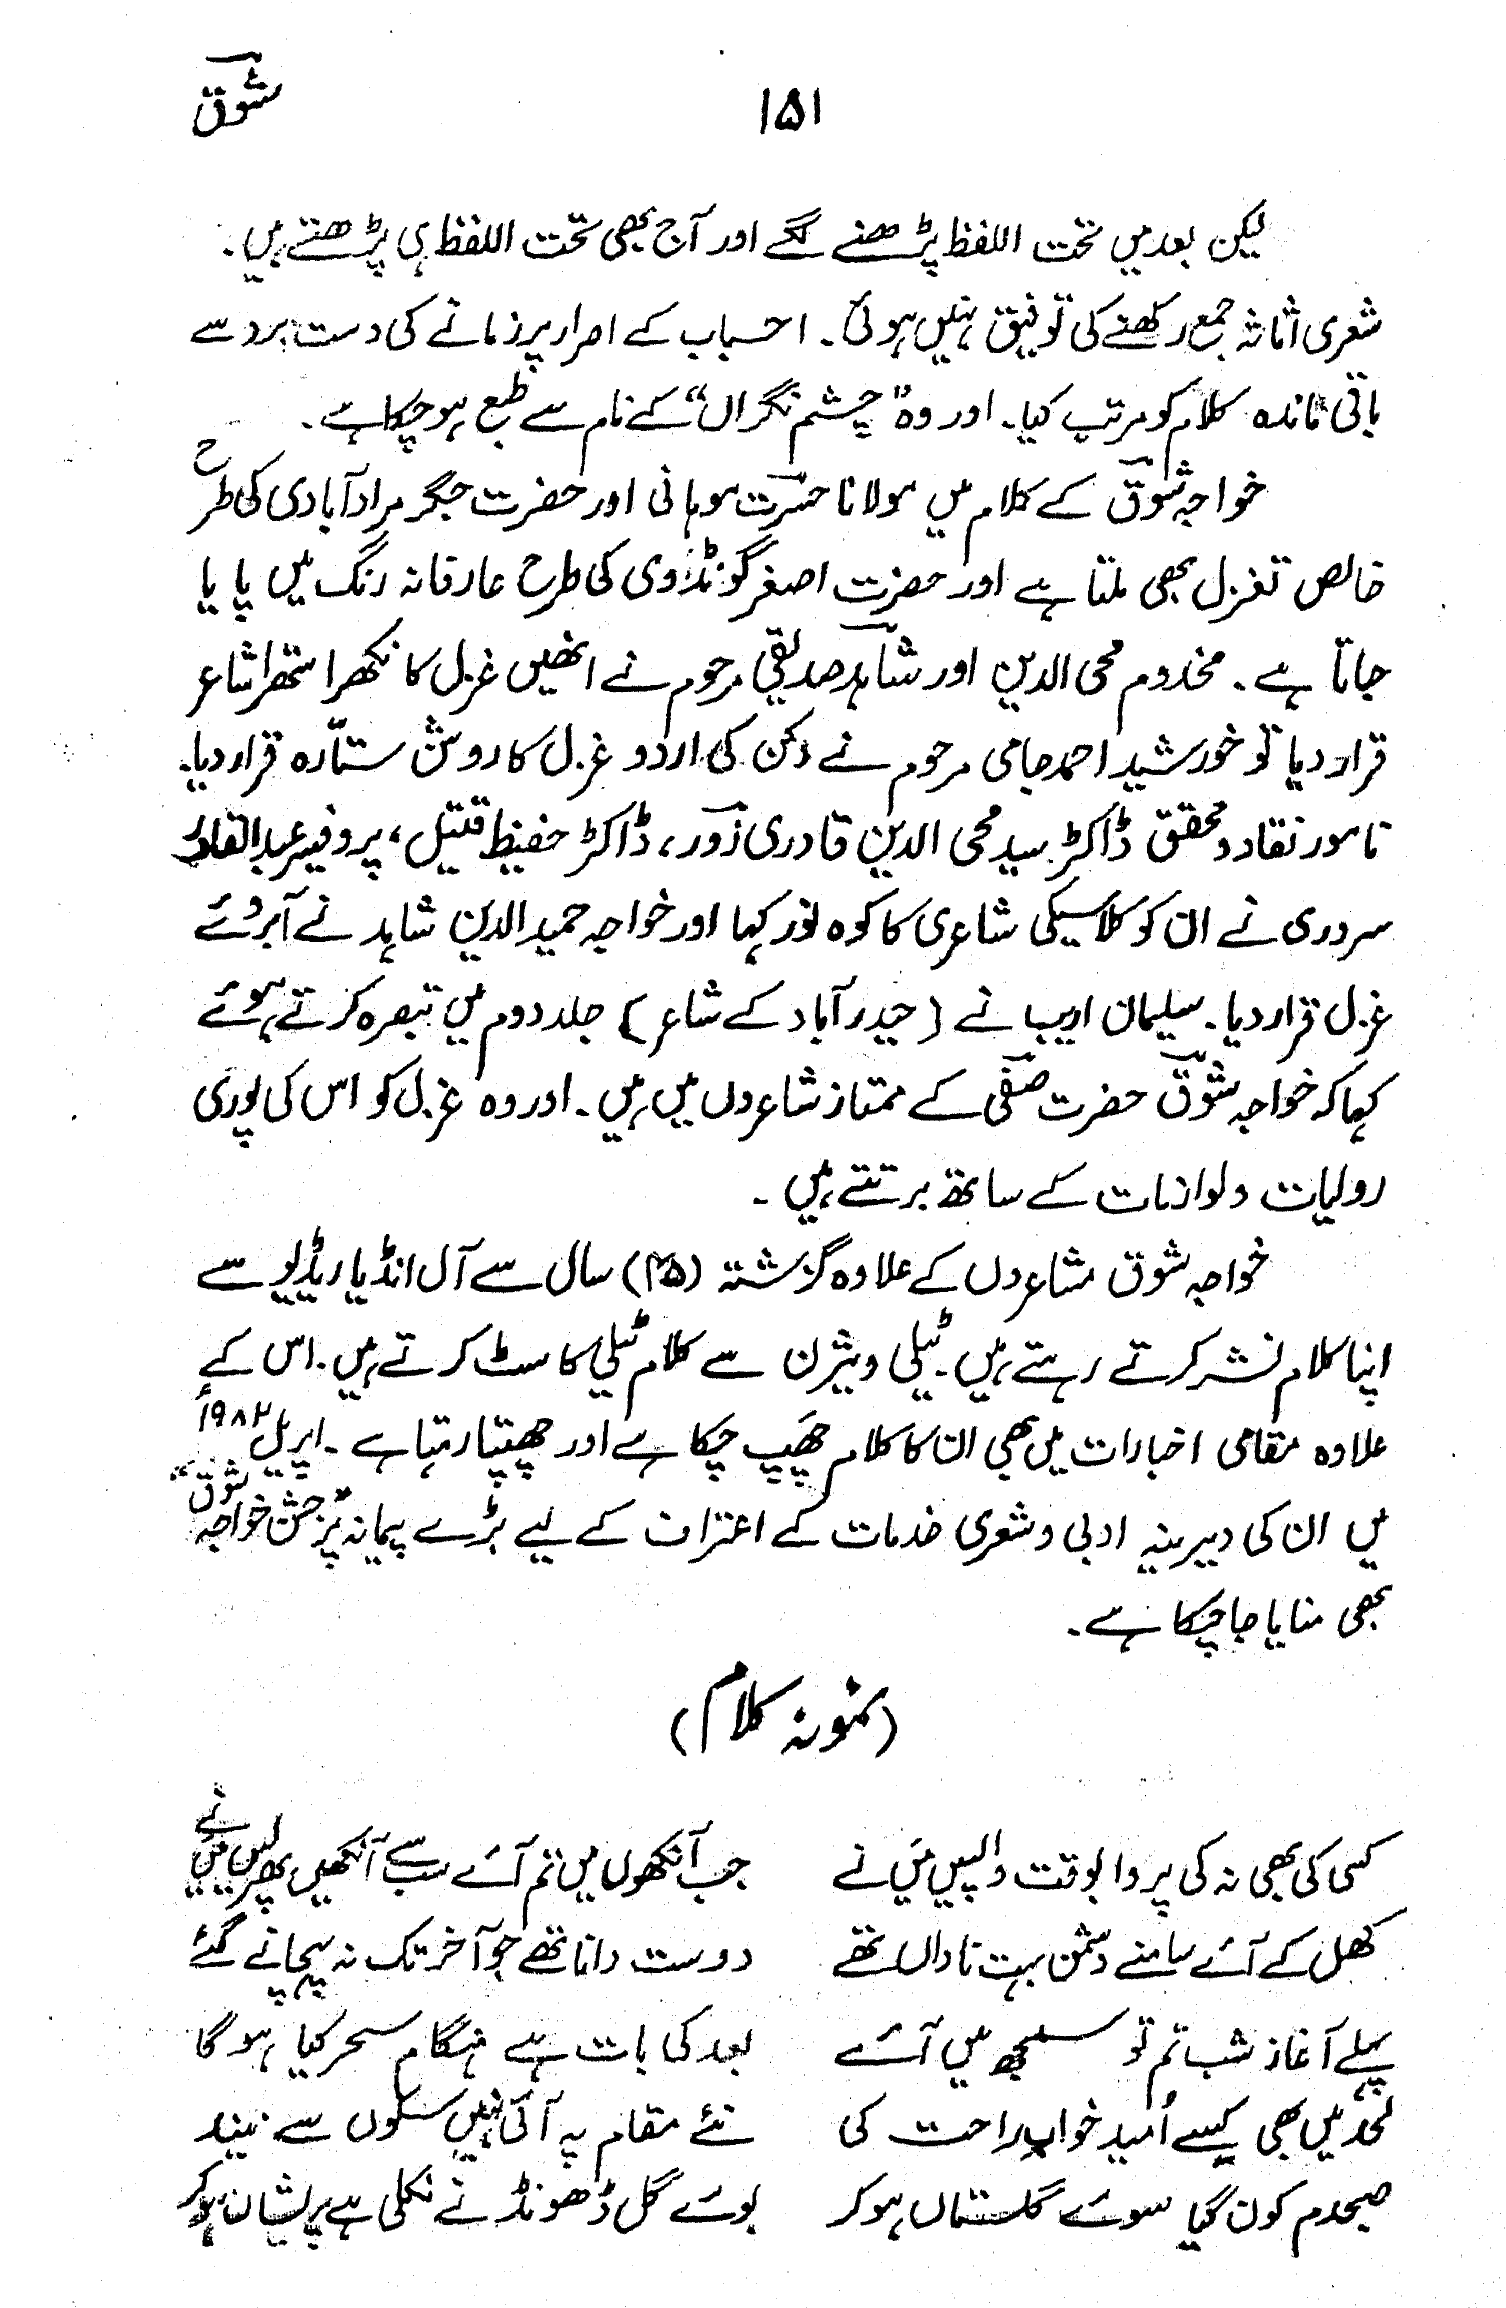 شوقؔ
۱۵۱
لیکن بعد میں تحت اللفظ پڑھنے لگے اور آج بھی تحت اللفظ ہی پڑھتے ہیں۔
شعری اثاثہ جمع رکھنے کی توفیق نہیں ہوئی۔ احباب کے اصرار پر زمانے کی دست برد سے
باقی ماندہ کلام کو مرتب کیا۔ اور وہ "چشم نگراں" کے نام سے طبع ہو چکا ہے۔
خواجہ شوقؔ کے کلام میں مولانا حسرتؔ موہانی اور حضرت جگر مرادآبادی کی طرح
خالص تغزل بھی ملتا ہے اور حضرت اصغر گونڈوی کی طرح عارفانہ رنگ میں پایا
جاتا ہے۔ مخدوم محی الدین اور شاہدؔ صدیقی مرحوم نے انھیں غزل کا نکھرا ستھرا شاعر
قرار دیا تو خورشید احمد جامی مرحوم نے دکن کی اردو غزل کا روشن ستارہ قرار دیا۔
نامور نقاد و محقق ڈاکٹر سید محی الدین قادری زورؔ، ڈاکٹر حفیظ قتیل، پروفیسر عبدالقادر
سروری نے ان کو کلاسیکی شاعری کا کوہ نور کہا اور خواجہ حمید الدین شاہد نے آبروئے
غزل قرار دیا۔ سلیمان اریب نے (حیدرآباد کے شاعر) جلد دوم میں تبصرہ کرتے ہوئے
کہا کہ خواجہ شوقؔ حضرت صفیؔ کے ممتاز شاعروں میں ہیں۔ اور وہ غزل کو اس کی پوری
روایات و لوازمات کے ساتھ برتتے ہیں۔
خواجہ شوق مشاعروں کے علاوہ گزشتہ (۲۵) سال سے آل انڈیا ریڈیو سے
اپنا کلام نشر کرتے رہتے ہیں۔ ٹیلی ویژن سے کلام ٹیلی کاسٹ کرتے ہیں۔ اس کے
علاوہ مقامی اخبارات میں بھی ان کا کلام چھپ چکا ہے اور چھپتا رہتا ہے۔ اپریل ۱۹۸۲ء
میں ان کی دیرینہ ادبی و شعری خدمات کے اعتراف کے لیے بڑے پیمانہ پر "جشن خواجہ شوق"
بھی منایا جا چکا ہے۔
(نمونہ کلام)
کسی کی بھی نہ کی پروا بوقت واپسیں میں نے جب آنکھوں میں تم آئے سب سے آنکھیں پھیر لیں میں نے
کھل کے آئے سامنے دشمن بہت ناداں تھے دوست دانا تھے جو آخر تک نہ پہچانے گئے
پہلے آغاز شب تم تو سمجھ میں آئے بعد کی بات ہے ہنگام سحر کیا ہوگا
لحد میں بھی کسے اُمید خواب راحت کی نئے مقام پہ آتی نہیں سکوں سے نیند
صبحدم کون گیا سوئے گلستاں ہو کر بوئے گل ڈھونڈنے نکلی ہے پریشاں ہو کر